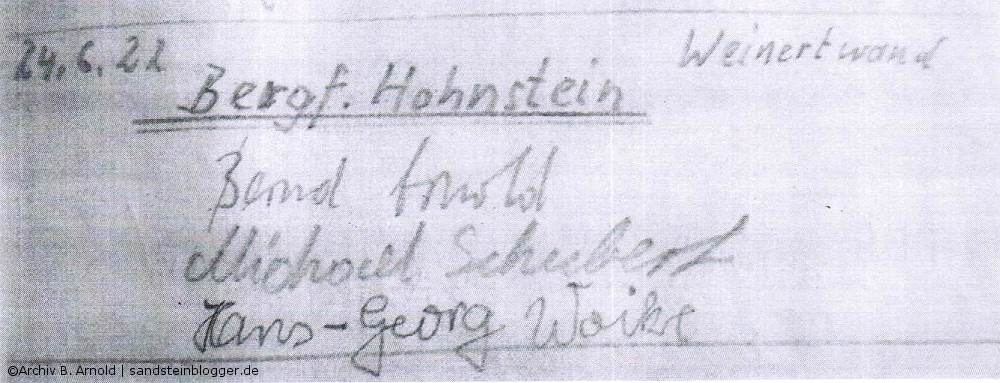 24.6.22 Weinertwand
Bergf. Hohnstein
Bernd Arnold
Michael Schubert
Hans-Georg Woike
©Archiv B. Arnold | sandsteinblogger.de